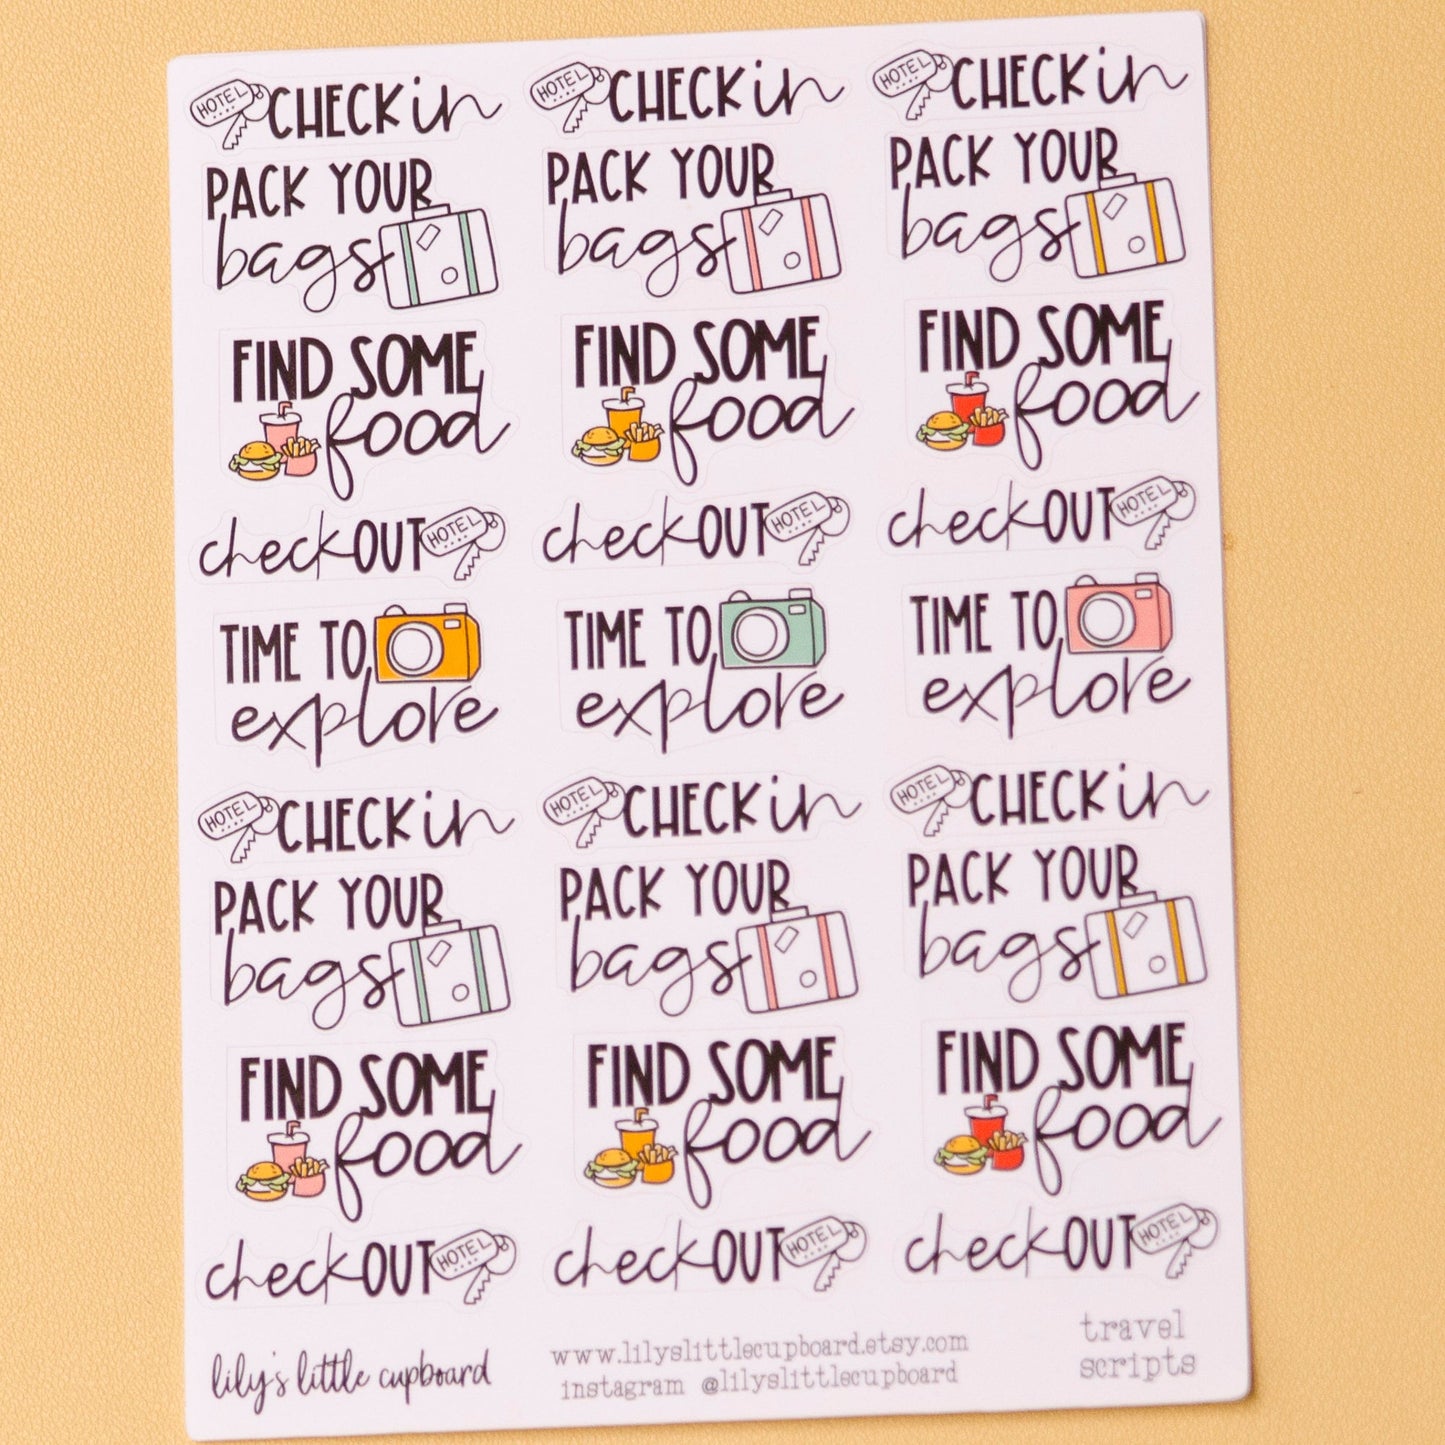 HOTEL CHECK in HOTEL CHECK in HOTEL CHECK in
PACK YOUR PACK YOUR PACK YOUR
bags bags bags
FIND SOME FIND SOME FIND SOME
food food food
check OUT HOTEL check OUT HOTEL check OUT HOTEL
TIME TO TIME TO TIME TO
explore explore explore
HOTEL CHECK in HOTEL CHECK in HOTEL CHECK in
PACK YOUR PACK YOUR PACK YOUR
bags bags bags
FIND SOME FIND SOME FIND SOME
food food food
check OUT HOTEL check OUT HOTEL check OUT HOTEL
lily's little cupboard
www.lilyslittlecupboard.etsy.com
instagram @lilyslittlecupboard
travel
scripts